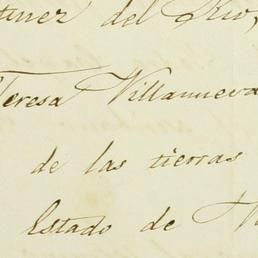 del Rio,
Teresa Villanueva
de las tierras
Estado de